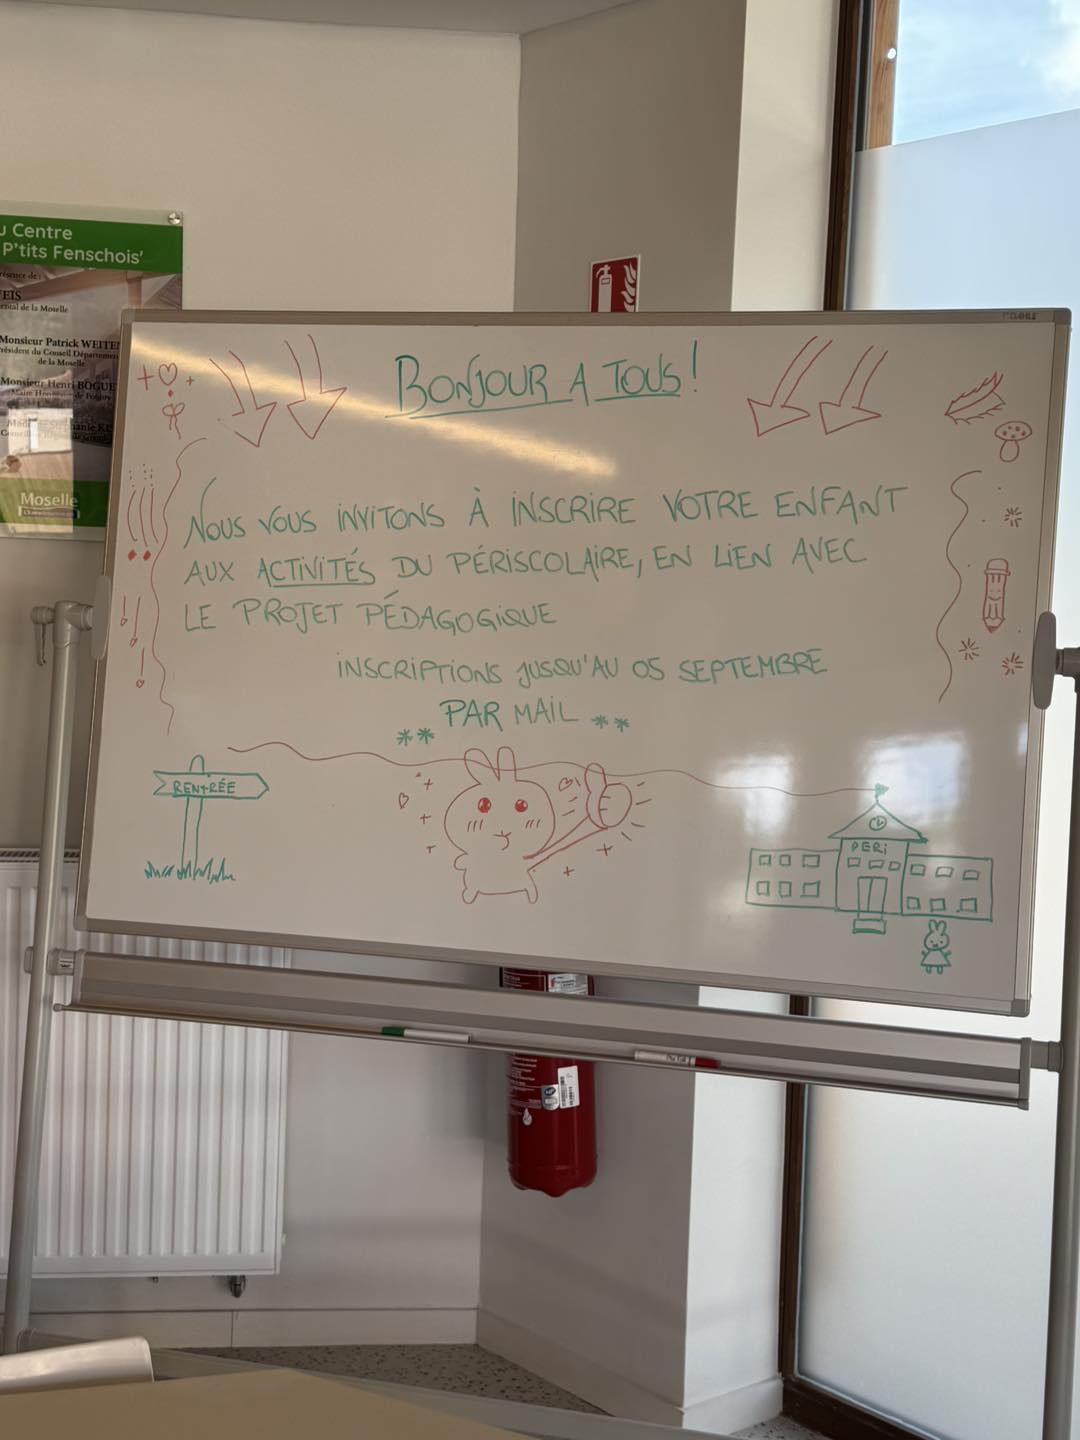 u Centre
P'tits Fenschois'
résence de :
EIS
ental de la Moselle
Monsieur Patrick WEITE
Président du Conseil Départeme
de la Moselle
Monsieur Henri BOGUE
Moselle
BONJOUR A TOUS !
NOUS VOUS INVITONS À INSCRIRE VOTRE ENFANT
AUX ACTIVITÉS DU PÉRISCOLAIRE, EN LIEN AVEC
LE PROJET PÉDAGOGIQUE
INSCRIPTIONS JUSQU'AU 05 SEPTEMBRE
** PAR MAIL **
RENTRÉE
PERI